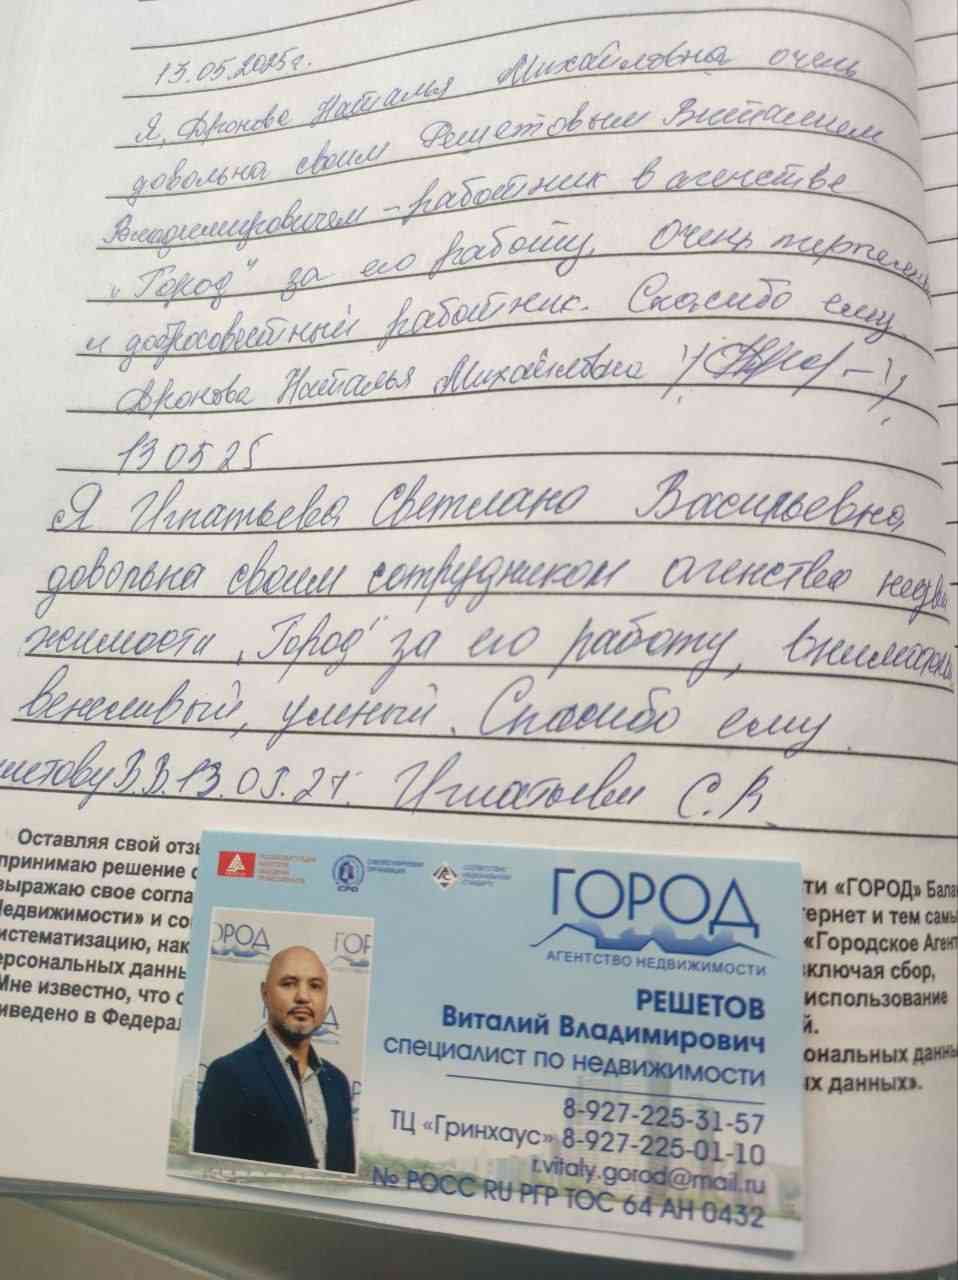 13.05.2025г.
Я, Дронова Наталья Михайловна очень
довольна своим Решетовым Виталием
Владимировичем – работник в агенстве
"Город" за его работу. Очень терпелив
и добросовестный работник. Спасибо ему
Дронова Наталья Михайловна
13 05 25
Я Игнатьева Светлана Васильевна
довольна своим сотрудником агенства недви
жимости "Город" за его работу, вниматель
вежливый, умный. Спасибо ему
шетову В.В. 13.05.25. Игнатьева С.В.
Оставляя свой отзы
принимаю решение о
выражаю свое согла
Недвижимости» и со
истематизацию, нак
ерсональных данны
Мне известно, что о
иведено в Федерал
ти «ГОРОД» Бала
тернет и тем самы
«Городское Агент
включая сбор,
использование
й.
ональных данны
ых данных».
СРО
ГОРОД
АГЕНТСТВО НЕДВИЖИМОСТИ
РЕШЕТОВ
Виталий Владимирович
специалист по недвижимости
8-927-225-31-57
ТЦ «Гринхаус» 8-927-225-01-10
r.vitaly.gorod@mail.ru
№ РОСС RU РГР ТОС 64 АН 0432